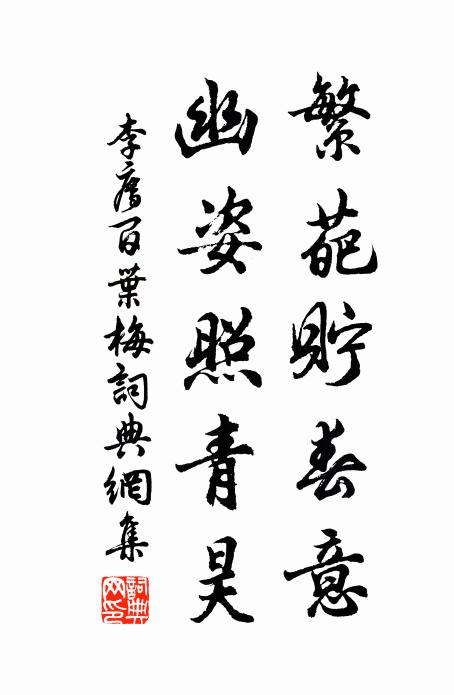 繁葩貯春意
幽姿照青昊
李廌百葉梅詞典網集
詞典網印